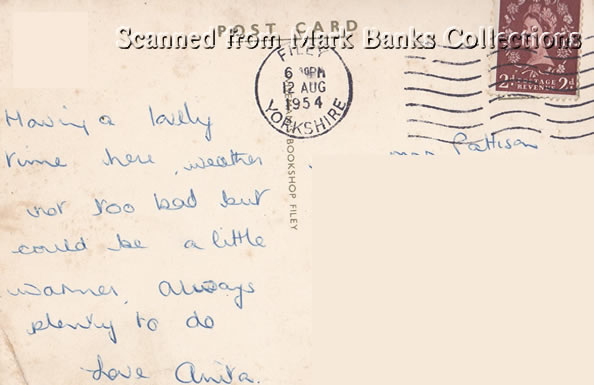 POST CARD
Scanned from Mark Banks Collections
FILEY
6 PM
12 AUG
1954
YORKSHIRE
2d POSTAGE REVENUE 2d
BOOKSHOP FILEY
Pattison
Having a lovely
time here, weather
not too bad but
could be a little
warmer, always
plenty to do
Love Anita.